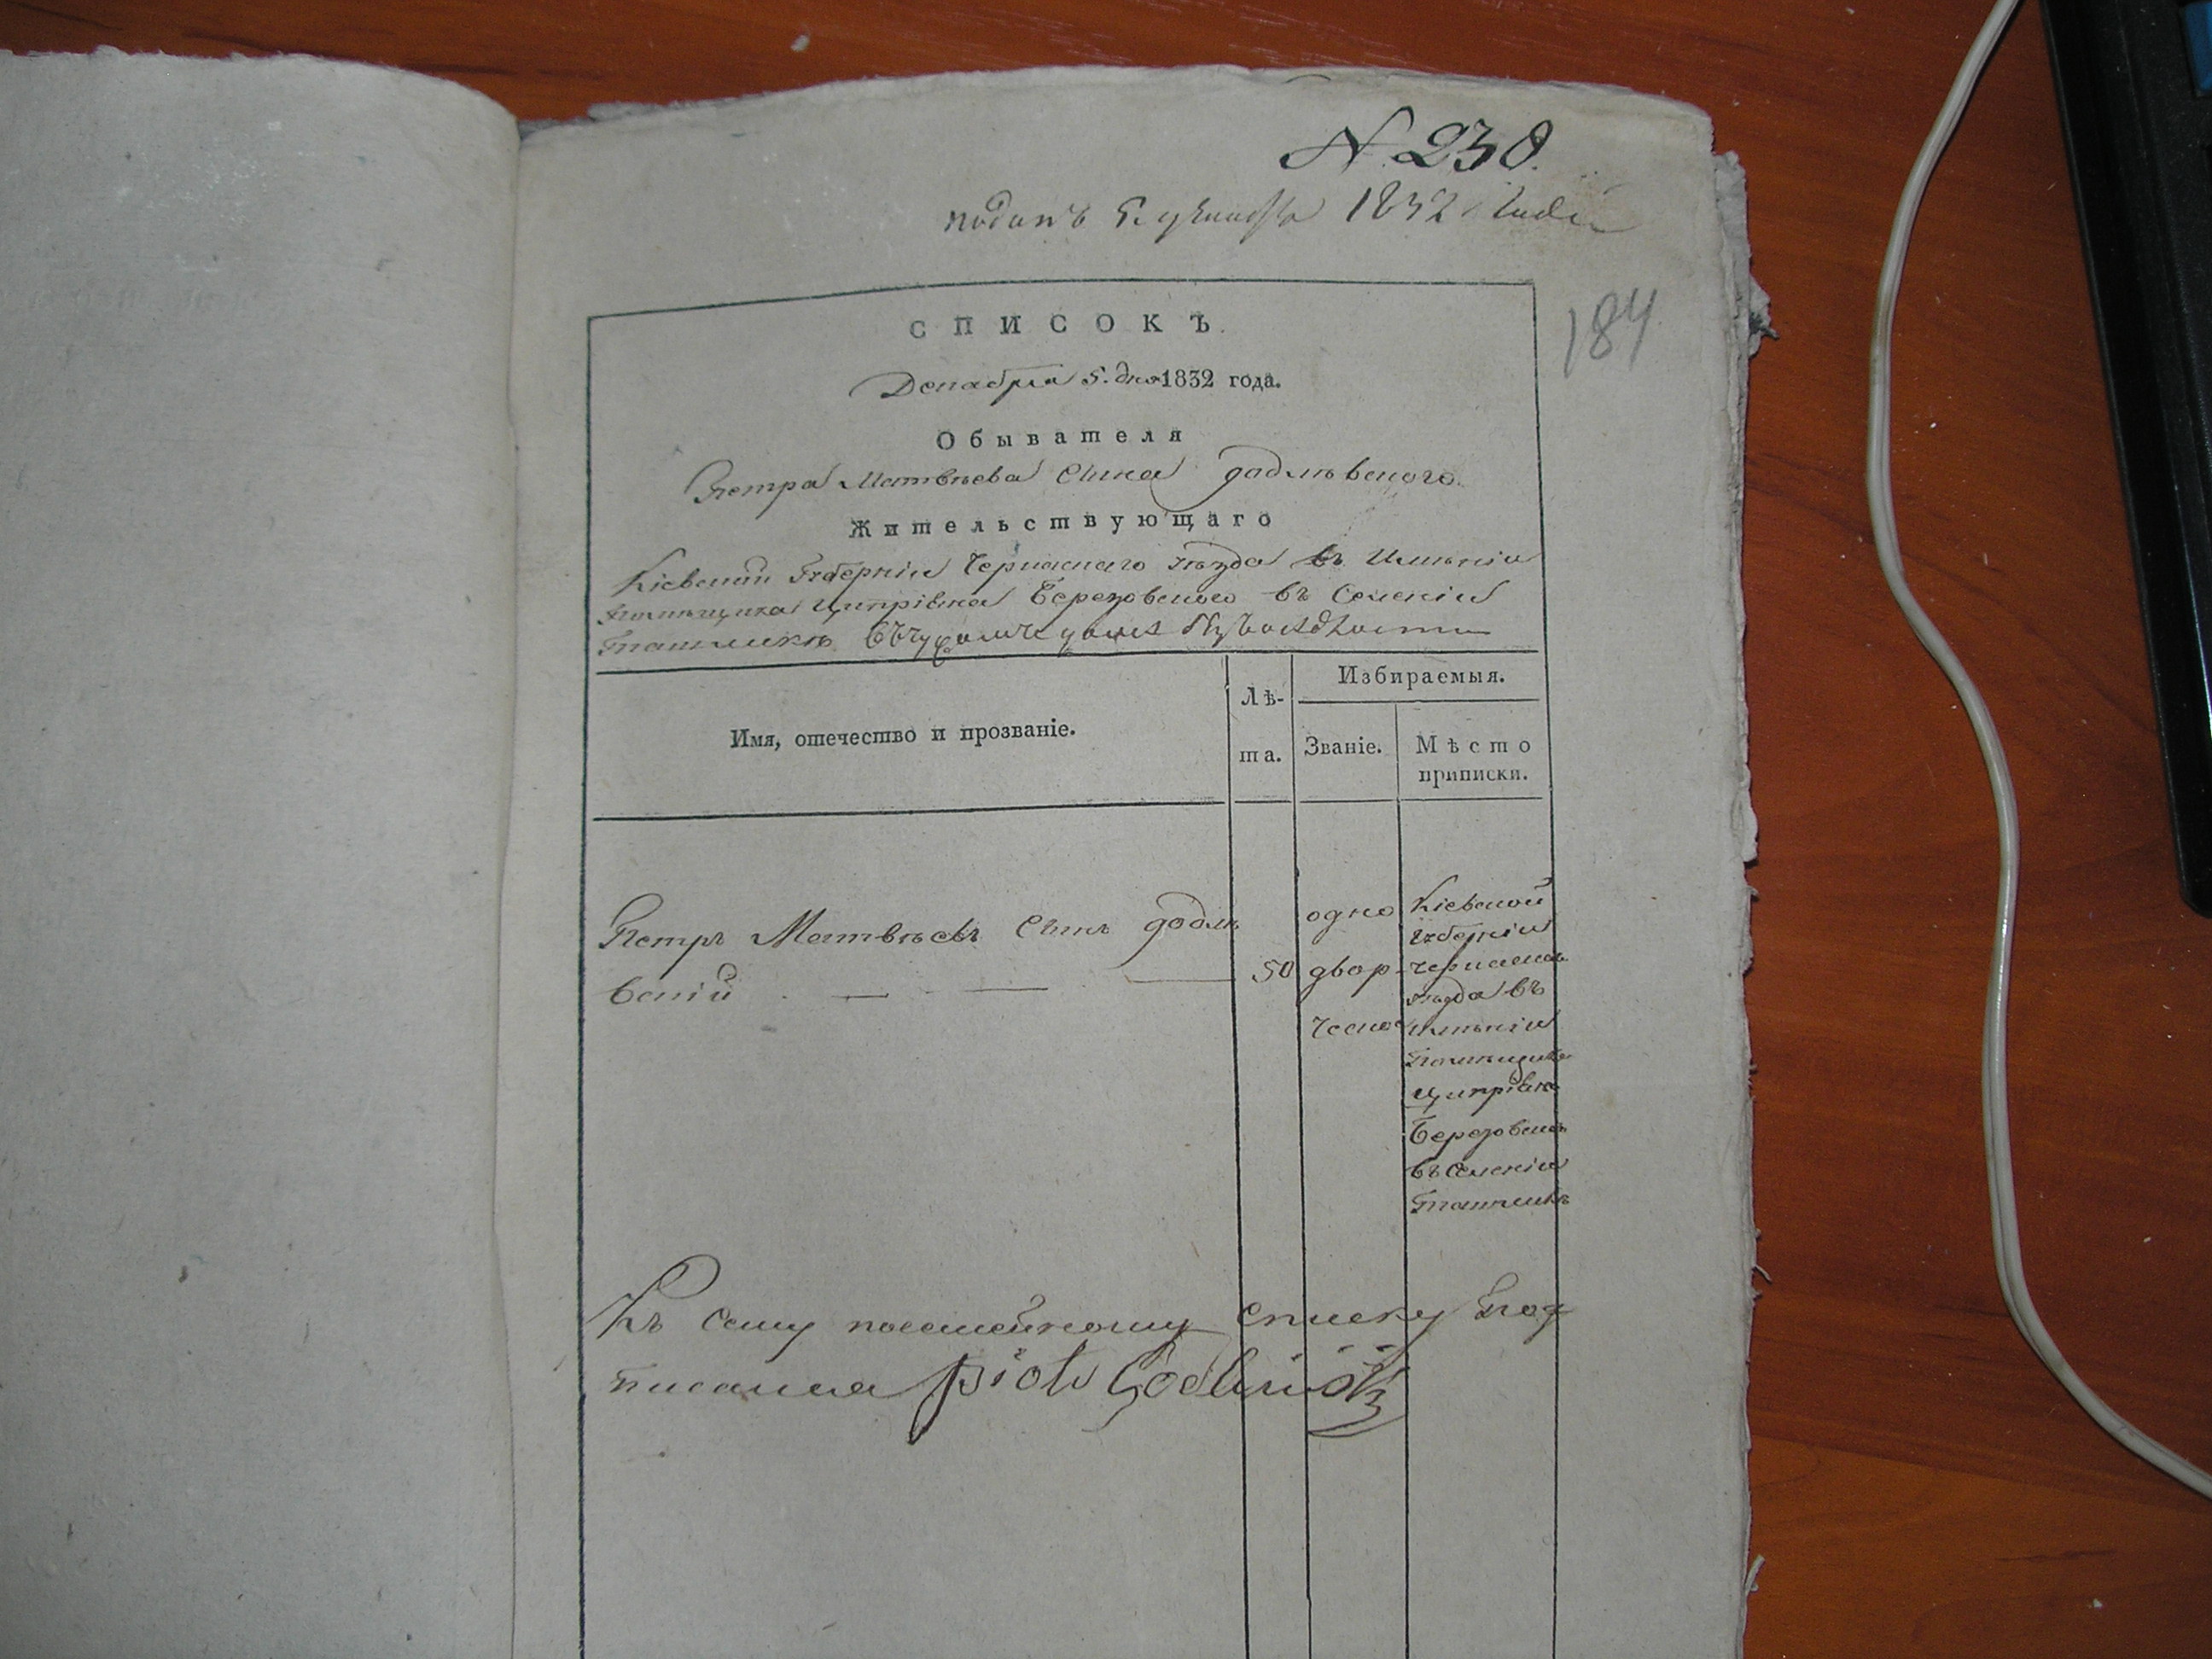 N. 238.
поданъ 5. декабря 1832 года
184
СПИСОКЪ.
Декабря 5. дня 1832 года.
Обывателя
Петра Матвѣева Сына Годлѣвского.
Жительствующаго
Кіевской Губерніи Черкаского уѣзда въ Имѣніи
Помѣщика Ципріяна Березовского въ Селеніи
Ташлыкѣ
Имя, отечество и прозваніе.
Лѣ-
та.
Избираемыя.
Званіе.
Мѣсто
приписки.
Петръ Матвѣевъ Сынъ Годлѣ
вскій
50
одно
двор-
ческое
Кіевской
Губерніи
Черкаского
уѣзда въ
имѣніи
Помѣщика
Ципріяна
Березовского
въ Селеніи
Ташлыкѣ
Къ Сему посемейному Списку Под
писался Piotr Godlewski